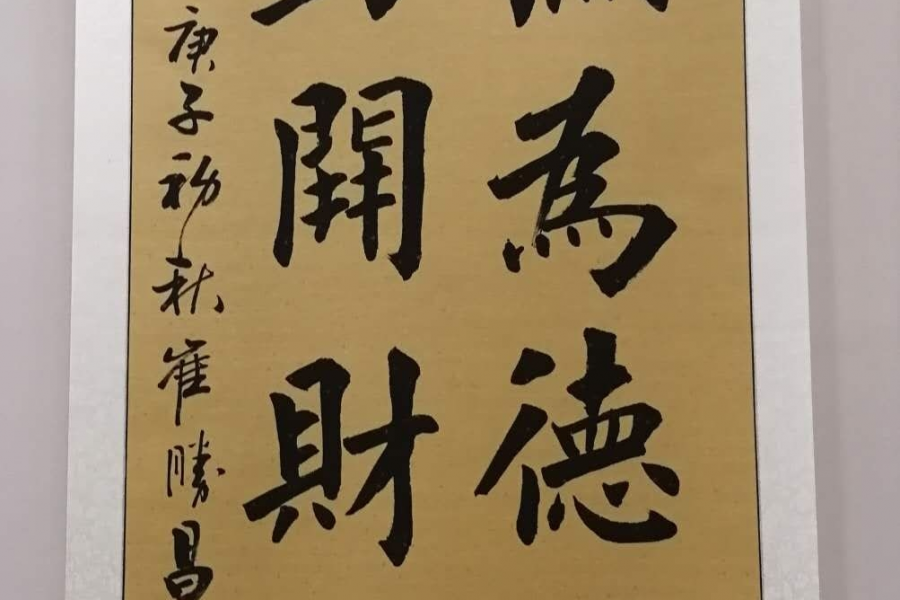 為德
開財
庚子初秋崔勝昌